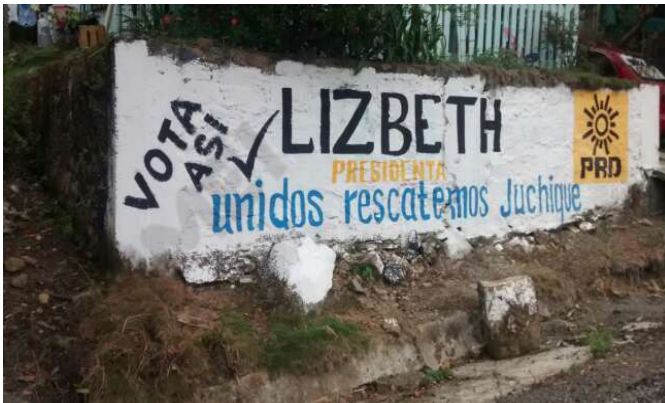 VOTA
ASI
LIZBETH
PRESIDENTA
unidos rescatemos Juchique
PRD